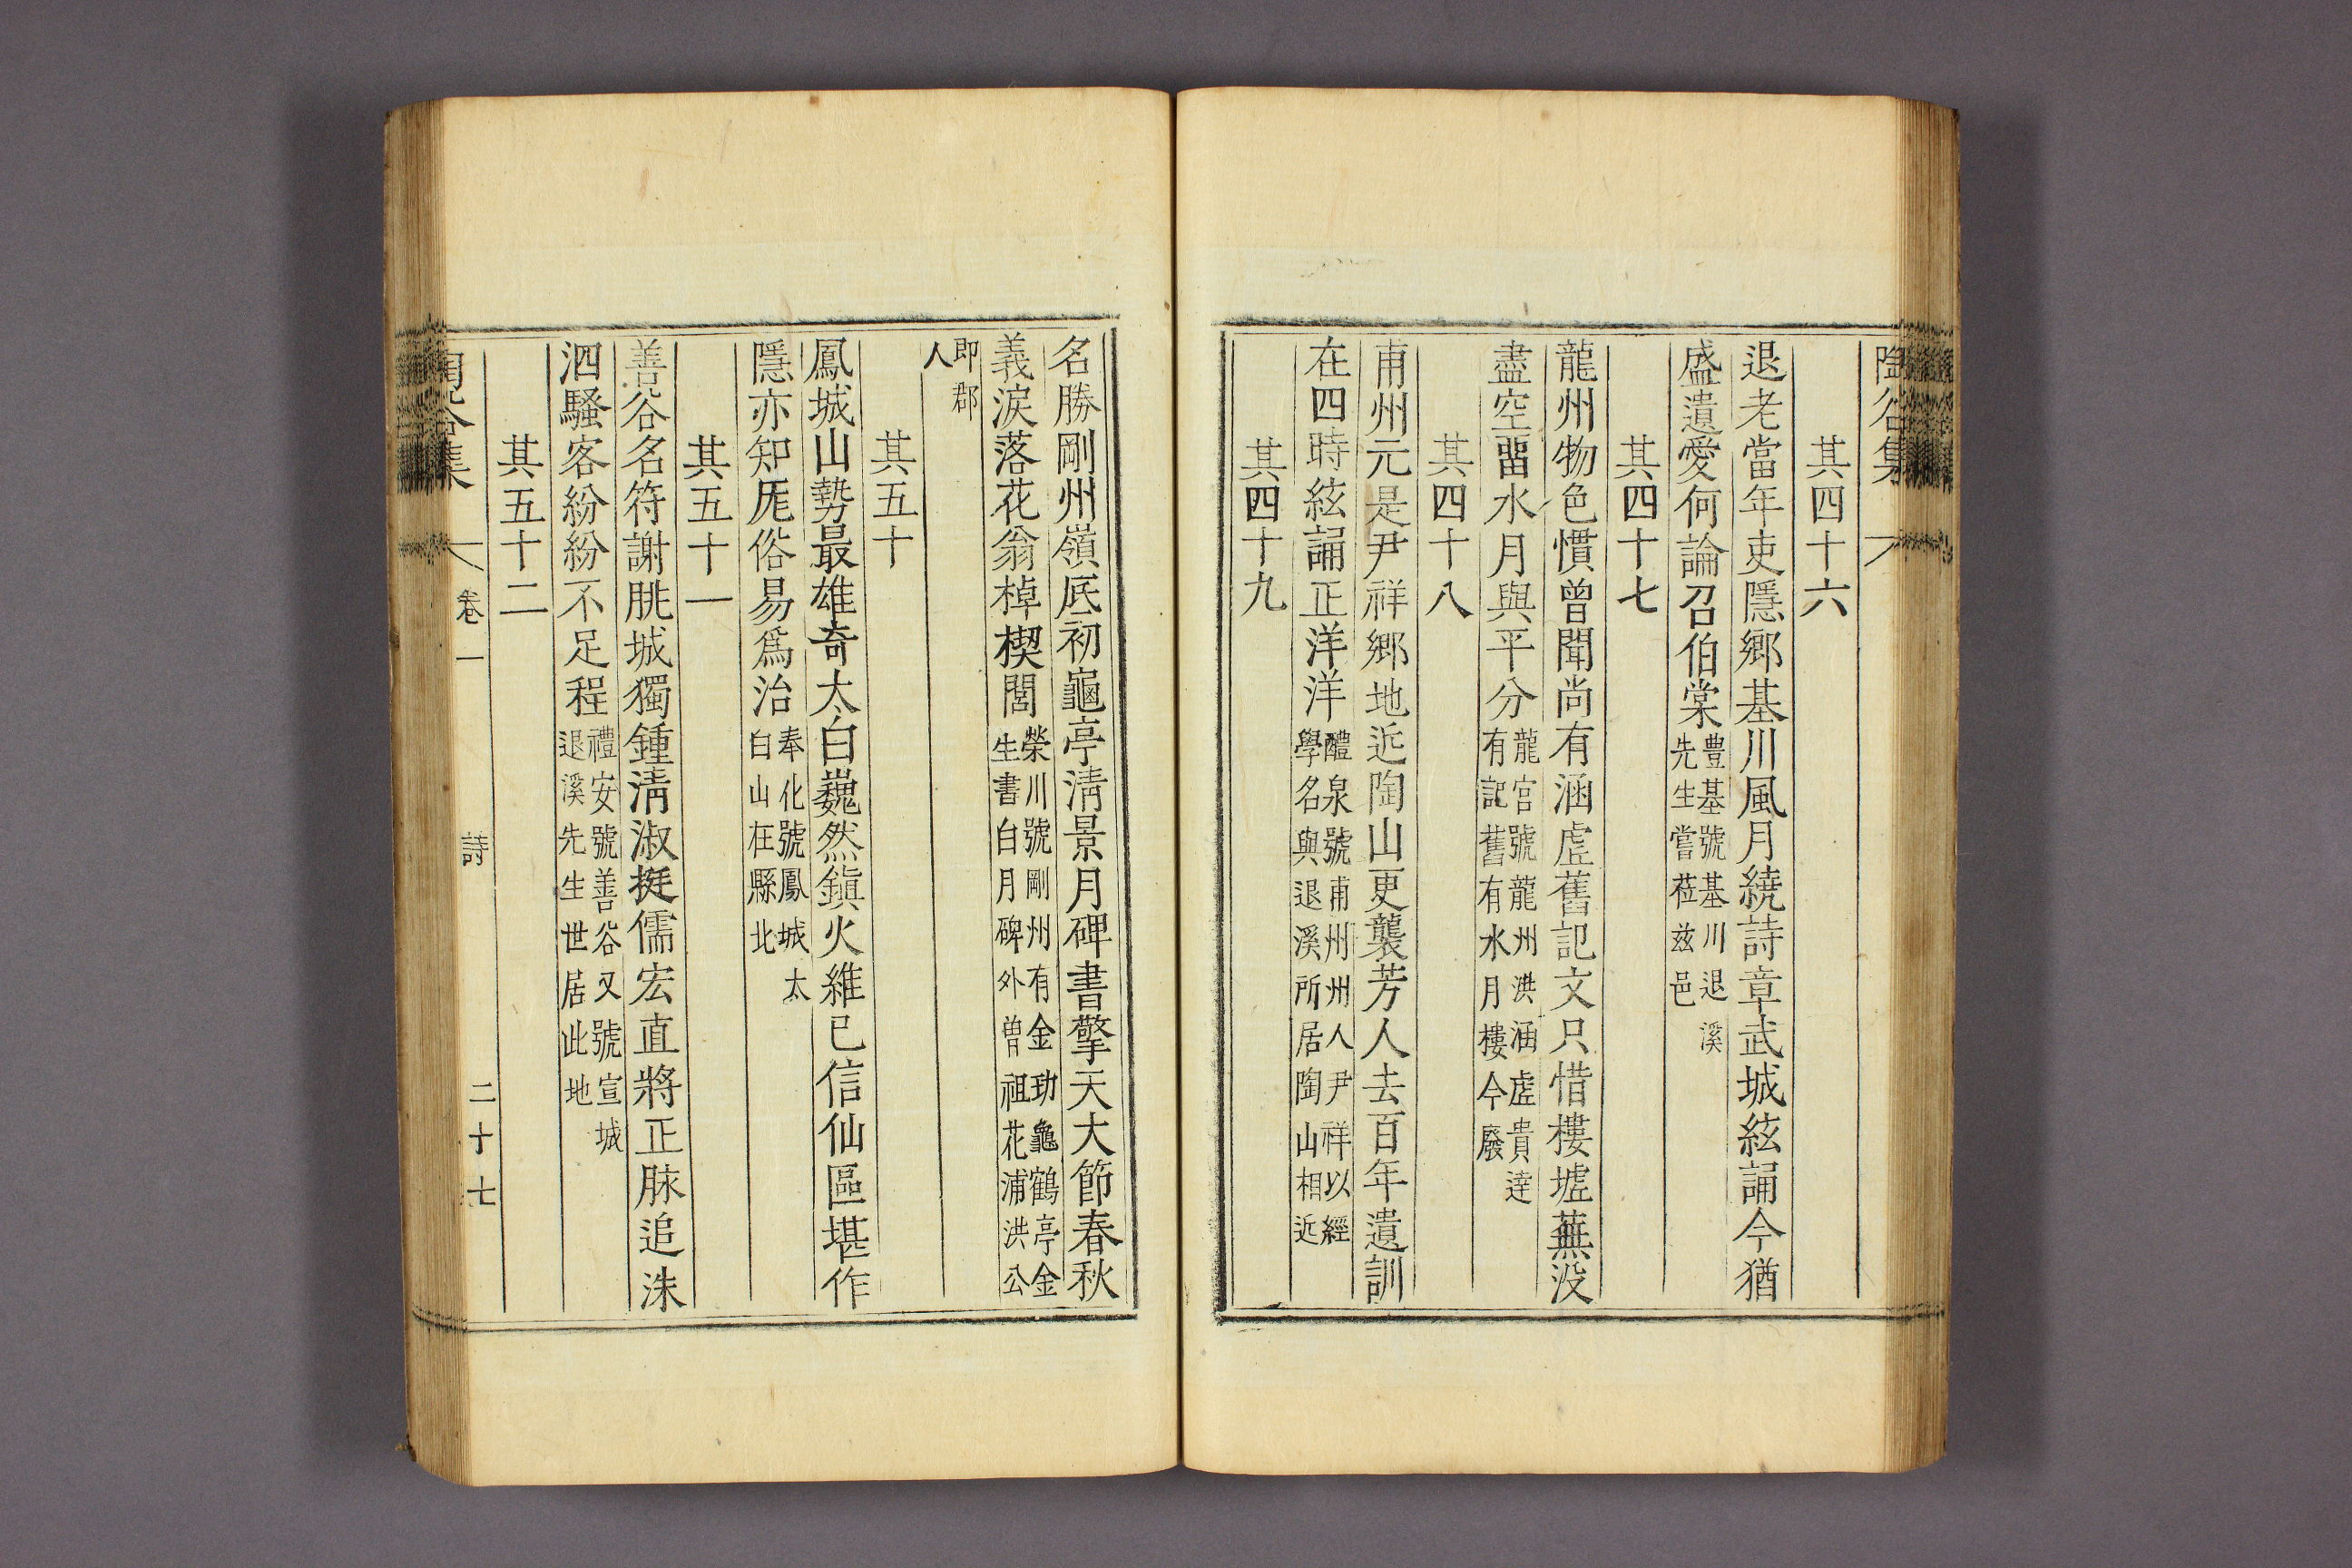 陶谷集
其四十六
退老當年吏隱鄉基川風月繞詩章武城絃誦今猶
盛遺愛何論召伯棠豊基號基川退溪先生嘗莅玆邑
其四十七
龍州物色慣曾聞尚有涵虛舊記文只惜樓墟蕪没
盡空留水月與平分龍宮號龍州洪涵虛貴達有記舊有水月樓今廢
其四十八
甫州元是尹祥鄉地近陶山更襲芳人去百年遺訓
在四時絃誦正洋洋醴泉號甫州州人尹祥以經學名與退溪所居陶山相近
其四十九
名勝剛州嶺底初龜亭淸景月碑書擎天大節春秋
義淚落花翁棹楔閭榮川號剛州有金玏龜鶴亭金生書白月碑外曾祖花浦洪公
即郡人
其五十
鳳城山勢最雄奇太白巍然鎭火維已信仙區堪作
隱亦知厖俗易爲治奉化號鳳城太白山在縣北
其五十一
善谷名符謝朓城獨鍾淸淑挺儒宏直將正脉追洙
泗騷客紛紛不足程禮安號善谷又號宣城退溪先生世居此地
其五十二
陶谷集
卷一
詩
二十七